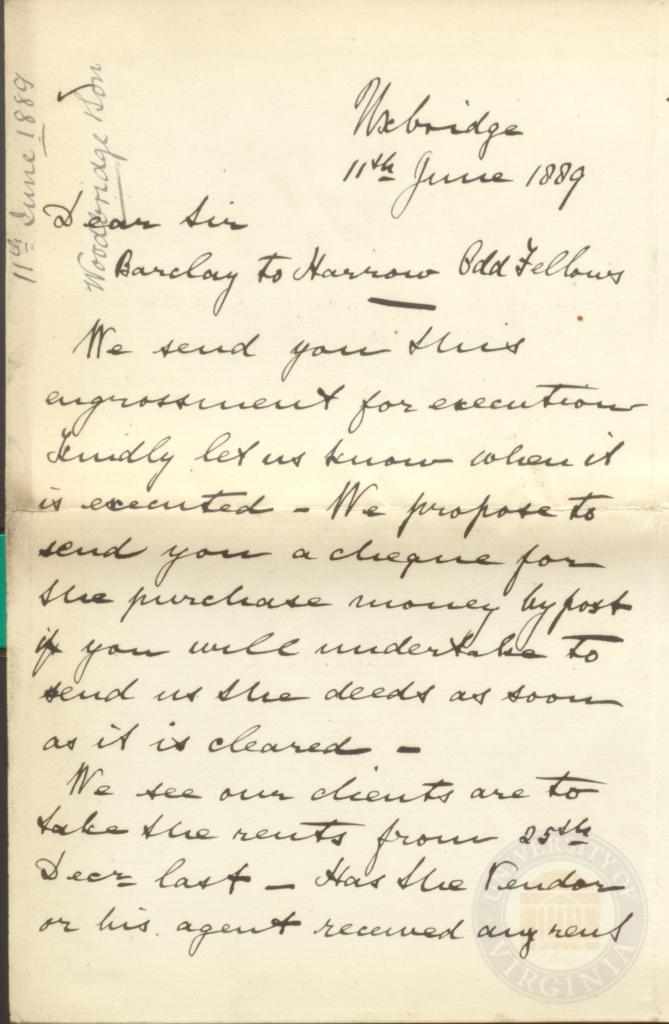 11th June 1889
Woodbridge & Son
Uxbridge
11th June 1889
Dear Sir
Barclay to Harrow Odd Fellows
We send you this
engrossment for execution
Kindly let us know when it
is executed - We propose to
send you a cheque for
the purchase money by post
if you will undertake to
send us the deeds as soon
as it is cleared -
We see our clients are to
take the rents from 25th
Decr last - Has the Vendor
or his agent received any rent
UNIVERSITY OF VIRGINIA
1819